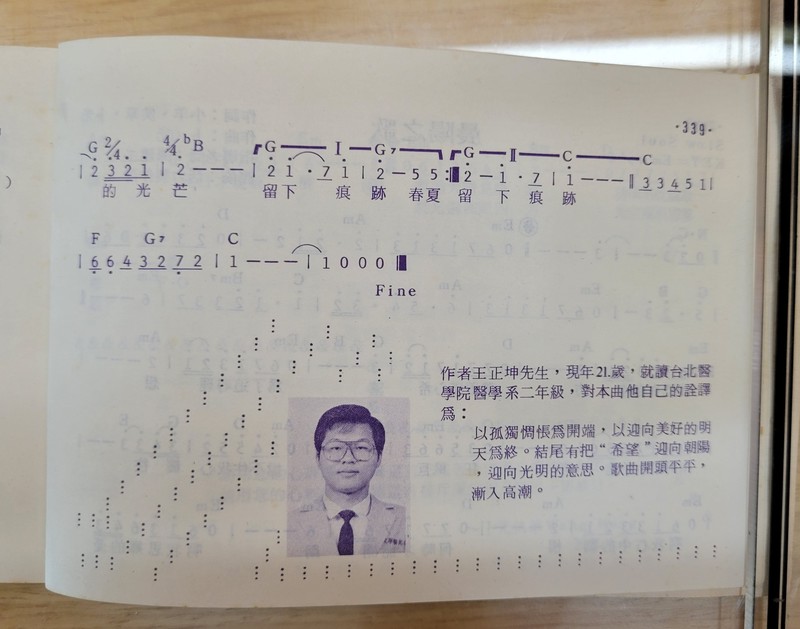 ·339·
G 2/4 4/4 ᵇB G I G7 G II C C
| 2 3 2 1 | 2 — — — | 2 1 · 7 1 | 2 — 5 5 :‖ 2 — 1 · 7 | 1 — — — ‖ 3 3 4 5 1 |
的 光 芒 留 下 痕 跡 春夏 留 下 痕 跡
F G7 C
| 6 6 4 3 2 7 2 | 1 — — — | 1 0 0 0 ‖
Fine
作者王正坤先生，現年21.歲，就讀台北醫
學院醫學系二年級，對本曲他自己的詮譯
爲：
以孤獨惆悵爲開端，以迎向美好的明
天爲終。結尾有把“希望”迎向朝陽
，迎向光明的意思。歌曲開頭平平，
漸入高潮。